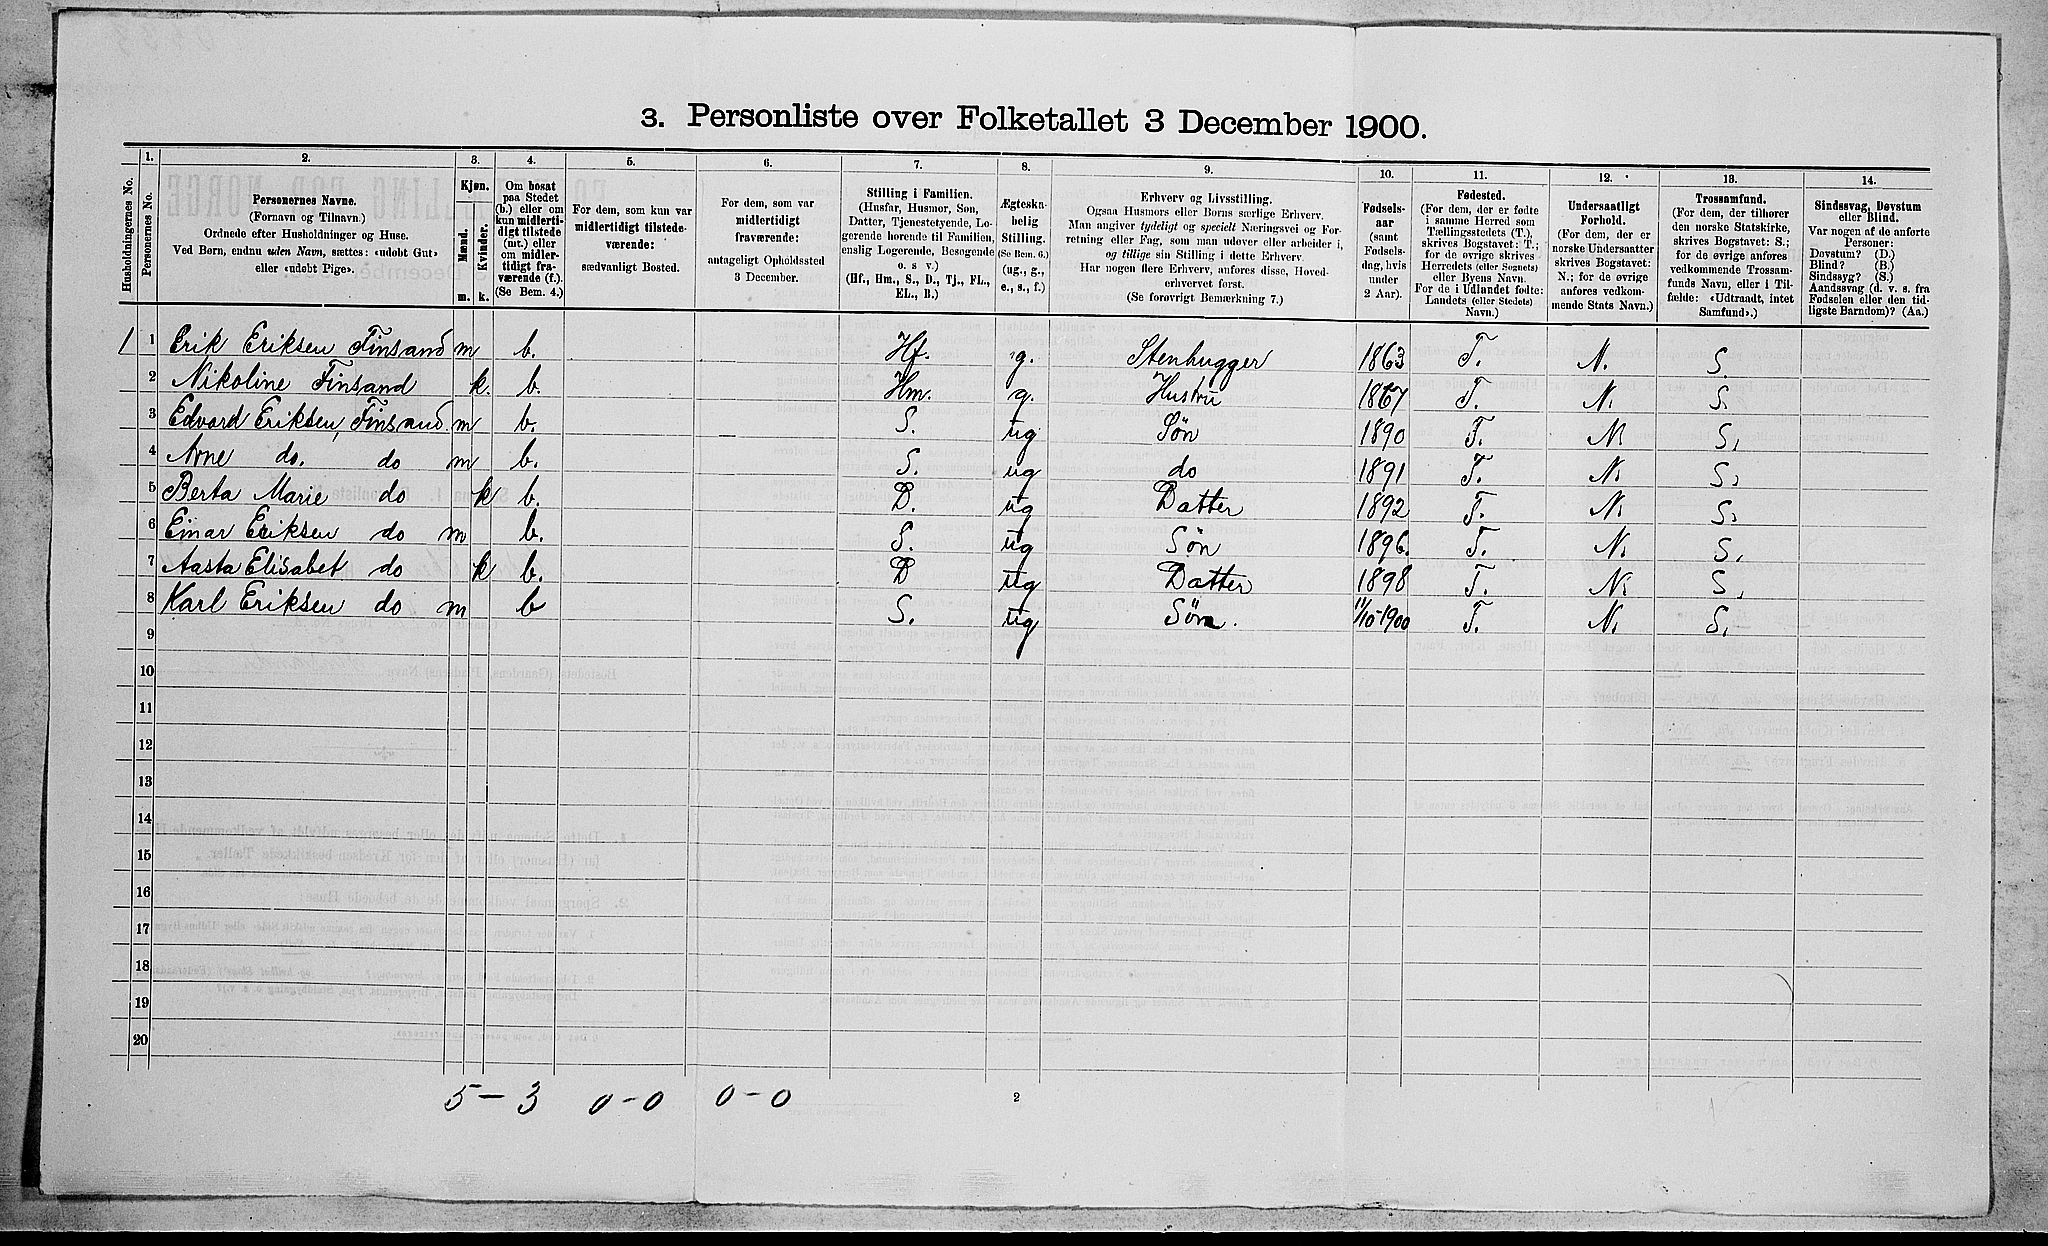 3. Personliste over Folketallet 3 December 1900.
1. 2. 3. 4. 5. 6. 7. 8. 9. 10. 11. 12. 13. 14.
Husholdningernes No.
Personernes No.
Personernes Navne.
(Fornavn og Tilnavn.)
Ordnede efter Husholdninger og Huse.
Ved Børn, endnu uden Navn, sættes: «udøbt Gut»
eller «udøbt Pige».
Kjøn.
Mænd.
Kvinder.
m. k.
Om bosat
paa Stedet
(b.) eller om
kun midlerti-
digt tilstede
(mt.) eller
om midler-
tidigt fra-
værende (f.).
(Se Bem. 4.)
For dem, som kun var
midlertidigt tilstede-
værende:
sædvanligt Bosted.
For dem, som var
midlertidigt
fraværende:
antageligt Opholdssted
3 December.
Stilling i Familien.
(Husfar, Husmor, Søn,
Datter, Tjenestetyende, Lo-
gerende hørende til Familien,
enslig Logerende, Besøgende
o. s. v.)
(Hf., Hm., S., D., Tj., FL.,
EL., B.)
Ægteska-
belig
Stilling.
(Se Bem. 6.)
(ug., g.,
e., s., f.)
Erhverv og Livsstilling.
Ogsaa Husmors eller Børns særlige Erhverv.
Man angiver tydeligt og specielt Næringsvei og For-
retning eller Fag, som man udøver eller arbeider i,
og tillige sin Stilling i dette Erhverv.
Har nogen flere Erhverv, anføres disse, Hoved-
erhvervet først.
(Se forøvrigt Bemærkning 7.)
Fødsels-
aar
(samt
Fødsels-
dag, hvis
under
2 Aar).
Fødested.
(For dem, der er fødte
i samme Herred som
Tællingsstedets (T.),
skrives Bogstavet: T.;
for de øvrige skrives
Herredets (eller Sognets)
eller Byens Navn.
For de i Udlandet fødte:
Landets (eller Stedets)
Navn.)
Undersaatligt
Forhold.
(For dem, der er
norske Undersaatter
skrives Bogstavet:
N.; for de øvrige
anføres vedkom-
mende Stats Navn.)
Trossamfund.
(For dem, der tilhører
den norske Statskirke,
skrives Bogstavet: S.;
for de øvrige anføres
vedkommende Trossam-
funds Navn, eller i Til-
fælde: «Udtraadt, intet
Samfund».)
Sindssvag, Døvstum
eller Blind.
Var nogen af de anførte
Personer:
Døvstum? (D.)
Blind? (B.)
Sindssyg? (S.)
Aandssvag (d. v. s. fra
Fødselen eller den tid-
ligste Barndom)? (Aa.)
1 1 Erik Eriksen Finsand m b. Hf. g. Stenhugger 1863 T. N. S.
2 Nikoline Finsand k. b. Hm. g. Hustru 1867 T. N. S.
3 Edvard Eriksen, Finsand. m b. S. ug Søn 1890 T. N S.
4 Arne do. do m b. S. ug do 1891 T. N. S.
5 Berta Marie do k b. D. ug Datter 1892 T. N. S.
6 Einar Eriksen do m b. S. ug Søn 1896. T. N. S.
7 Aasta Elisabet do k b. D ug Datter 1898 T. N. S.
8 Karl Eriksen do m b S. ug Søn. 11/10-1900 T. N. S.
9
10
11
12
13
14
15
16
17
18
19
20
5 - 3 0-0 0-0 2